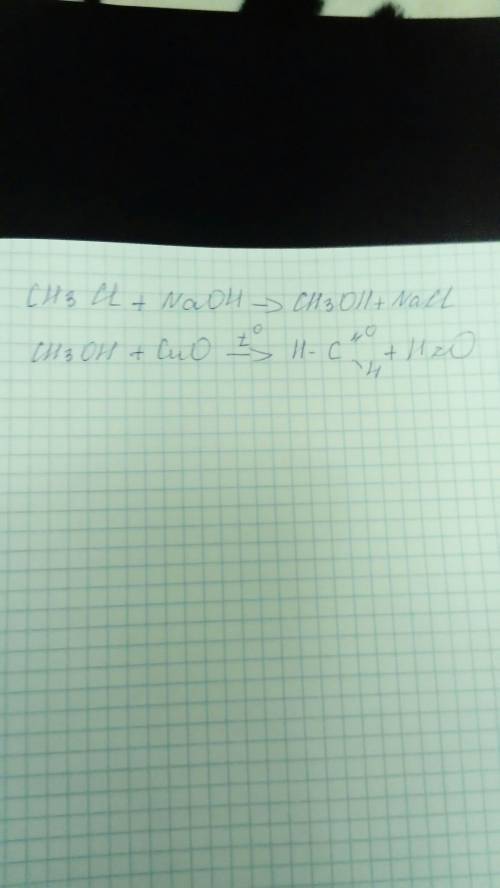 CH3Cl + NaOH → CH3OH + NaCl
CH3OH + CuO t° → H-C O H + H2O